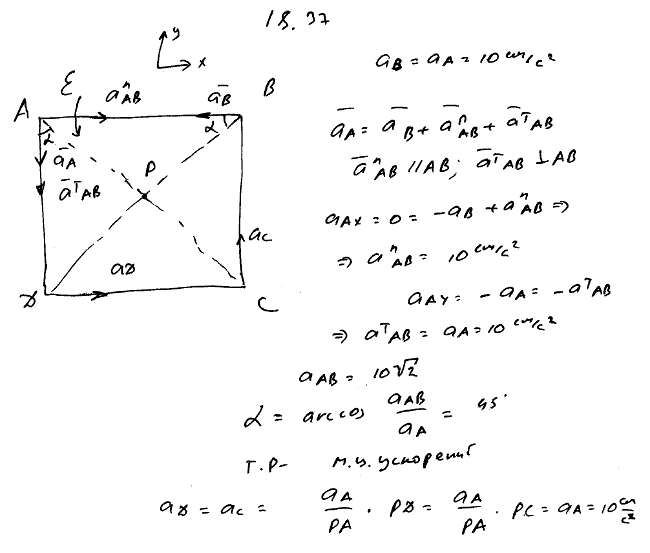 18.37
y
x
a_B = a_A = 10 см/с²
A
ε
ā^n_AB
ā_B
B
α
α
ā_A
ā^τ_AB
P
a_C
a_D
D
C
ā_A = ā_B + ā^n_AB + ā^τ_AB
ā^n_AB // AB; ā^τ_AB ⊥ AB
a_AX = 0 = -a_B + a^n_AB ⇒
⇒ a^n_AB = 10 см/с²
a_AY = -a_A = -a^τ_AB
⇒ a^τ_AB = a_A = 10 см/с²
a_AB = 10√2
α = arccos a_AB/a_A = 45°
Т.P - м.ц. ускорений
a_D = a_C = a_A/PA · PD = a_A/PA · PC = a_A = 10 см/с²